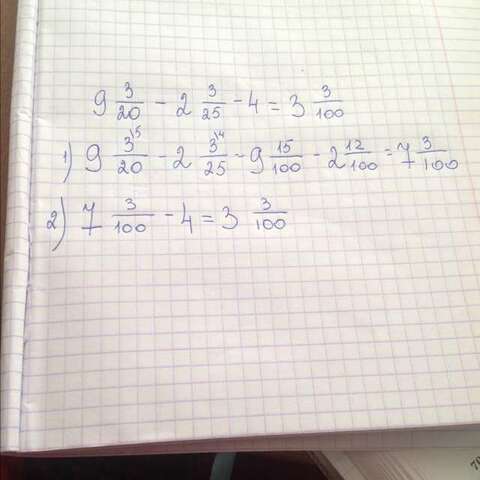 9 3/20 - 2 3/25 - 4 = 3 3/100
1) 9 3\5/20 - 2 3\4/25 - 9 15/100 - 2 12/100 = 7 3/100
2) 7 3/100 - 4 = 3 3/100